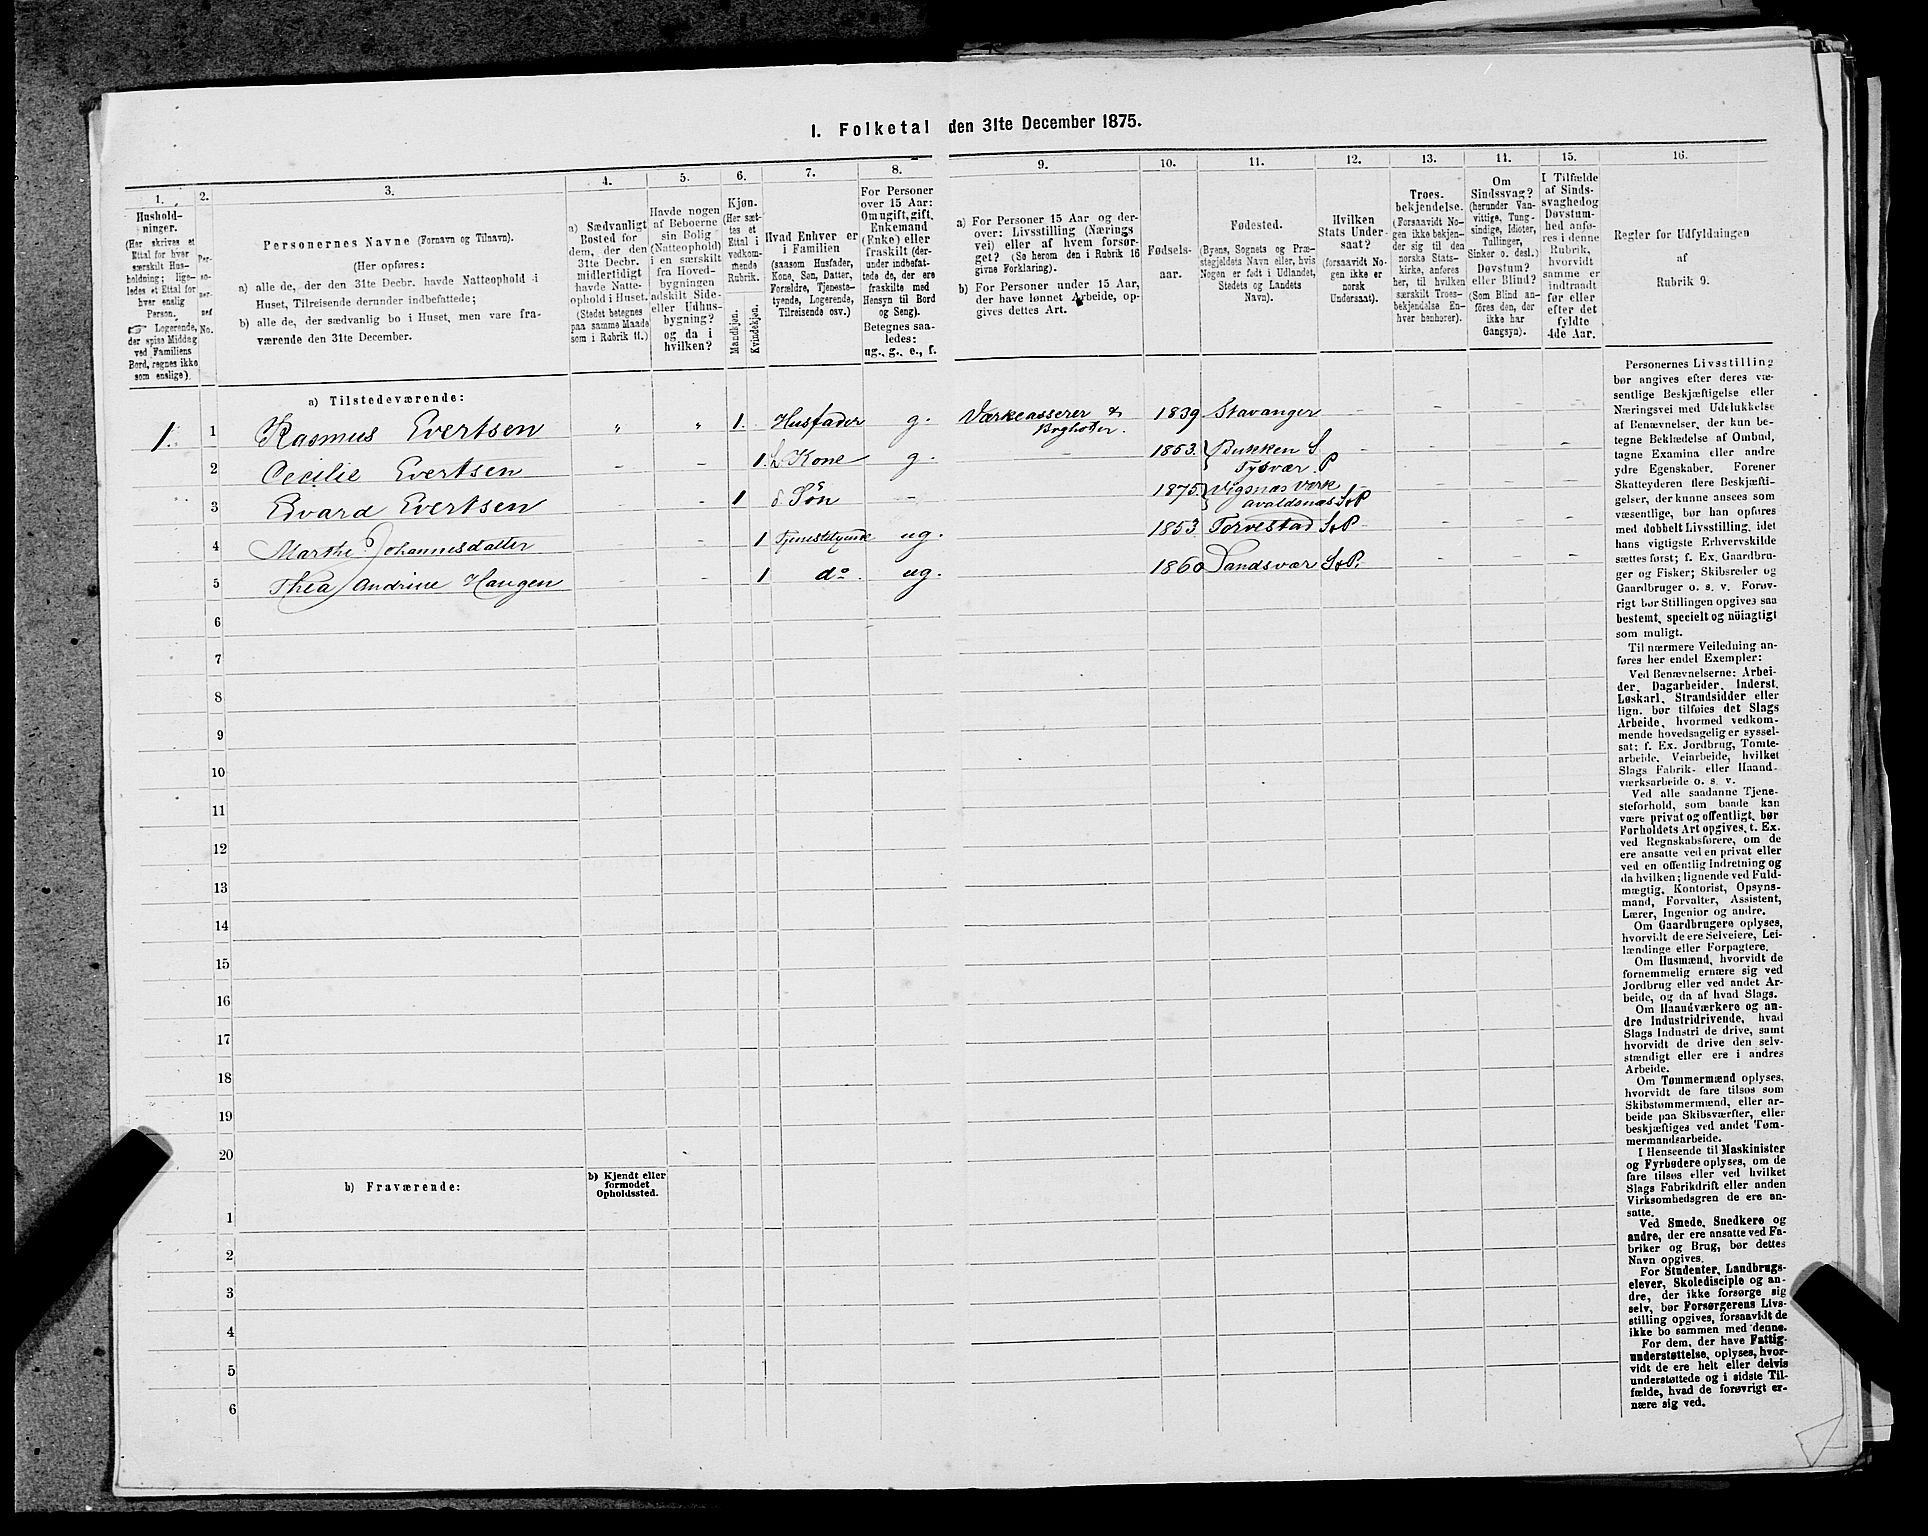 I. Folketal den 31te December 1875.
1. 2. 3. 4. 5. 6. 7. 8. 9. 10. 11. 12. 13. 14. 15. 16.
Hushold-
ninger.
(Her skrives et
Ettal for hver
særskilt Hus-
holdning; lige-
ledes et Ettal for
hver enslig
Person.
☞ Logerende,
der spise Middag
ved Familiens
Bord, regnes ikke
som enslige).
Per-
so-
ner-
nes
No.
Personernes Navne (Fornavn og Tilnavn).
(Her opføres:
a) alle de, der den 31te Decbr. havde Natteophold i
Huset, Tilreisende derunder indbefattede;
b) alle de, der sædvanlig bo i Huset, men vare fra-
værende den 31te December.
a) Sædvanligt
Bosted for
dem, der den
31te Decbr.
midlertidigt
havde Natte-
ophold i Huset.
(Stedet betegnes
paa samme Maade
som i Rubrik 11.)
Havde nogen
af Beboerne
sin Bolig
(Natteophold)
i en særskilt
fra Hoved-
bygningen
adskilt Side-
eller Udhus-
bygning?
og da i
hvilken?
Kjøn.
(Her sæt-
tes et
Ettal i
vedkom-
mende
Rubrik.
Mandkjøn.
Kvindekjøn.
Hvad Enhver er
i Familien
(saasom Husfader,
Kone, Søn, Datter,
Forældre, Tjeneste-
tyende, Logerende,
Tilreisende osv.)
For Personer
over 15 Aar:
Om ugift, gift,
Enkemand
(Enke) eller
fraskilt (der-
under indbefat-
tede de, der ere
fraskilte med
Hensyn til Bord
og Seng).
Betegnes saa-
ledes:
ug., g., e., f.
a) For Personer 15 Aar og der-
over: Livsstilling (Nærings
vei) eller af hvem forsør-
get? (Se herom den i Rubrik 16
givne Forklaring).
b) For Personer under 15 Aar,
der have lønnet Arbeide, op-
gives dettes Art.
Fødsels-
aar.
Fødested.
(Byens, Sognets og Præ-
stegjeldets Navn eller, hvis
Nogen er født i Udlandet,
Stedets og Landets
Navn).
Hvilken
Stats Under-
saat?
(forsaavidt No-
gen ikke er
norsk
Undersaat).
Troes-
bekjendelse.
(Forsaavidt No-
gen ikke bekjen-
der sig til den
norske Stats-
kirke, anføres
her, til hvilken
særskilt Troes-
bekjendelse En-
hver henhører).
Om
Sindssvag?
(herunder Van-
vittige, Tung-
sindige, Idioter,
Tullinger,
Sinker o. desl.)
Døvstum?
eller Blind?
(Som Blind an-
føres den, der
ikke har
Gangsyn).
I Tilfælde
af Sinds-
svaghed og
Døvstum-
hed anfø-
res i denne
Rubrik,
hvorvidt
samme er
indtraadt
før eller
efter det
fyldte
4de Aar.
Regler for Udfyldningen
af
Rubrik 9.
a) Tilstedeværende:
1. 1 Rasmus Evertsen " " 1. Husfader g. Værkcasserer & Boghoder. 1839 Stavanger
2 Cecilie Evertsen 1. h Kone g. 1853. Bukken S Tysvær P
3 Edvard Evertsen 1 s Søn 1875 Vigsnæs Verk Avaldsnæs S&P
4 Marthe Johannesdatter 1 Tjenestetyende ug. 1853 Torvestad S&P
5 Thea Andrine Haugen 1 do ug. 1860 Sandsvær S&P.
6
7
8
9
10
11
12
13
14
15
16
17
18
19
20
b) Fraværende:
b) Kjendt eller
formodet
Opholdssted.
1
2
3
4
5
6
Personernes Livsstilling
bør angives efter deres væ-
sentlige Beskjæftigelse eller
Næringsvei med Udelukkelse
af Benævnelser, der kun be-
tegne Beklædelse af Ombud,
tagne Examina eller andre
ydre Egenskaber. Forener
Skatteyderen flere Beskjæfti-
gelser, der kunne ansees som
væsentlige, bør han opføres
med dobbelt Livsstilling, idet
hans vigtigste Erhvervskilde
sættes først; f. Ex. Gaardbru-
ger og Fisker; Skibsreder og
Gaardbruger o. s. v. Forøv-
rigt bør Stillingen opgives saa
bestemt, specielt og nöiagtigt
som muligt.
Til nærmere Veiledning an-
føres her endel Exempler:
Ved Benævnelserne: Arbei-
der, Dagarbeider, Inderst,
Løskarl, Strandsidder eller
lign. bør tilføies det Slags
Arbeide, hvormed vedkom-
mende hovedsagelig er syssel-
sat; f. Ex. Jordbrug, Tomte-
arbeide, Veiarbeide, hvilket
Slags Fabrik- eller Haand-
værksarbeide o. s. v.
Ved alle saadanne Tjene-
steforhold, som baade kan
være privat og offentligt, bør
Forholdets Art opgives, t. Ex.
ved Regnskabsførere, om de
ere ansatte ved en privat eller
ved en offentlig Indretning og
da hvilken; lignende ved Fuld-
mægtig, Kontorist, Opsyns-
mand, Forvalter, Assistent,
Lærer, Ingeniør og andre.
Om Gaardbrugere oplyses,
hvorvidt de ere Selveiere, Lei-
lændinge eller Forpagtere.
Om Husmænd, hvorvidt de
fornemmelig ernære sig ved
Jordbrug eller ved andet Ar-
beide, og da af hvad Slags.
Om Haandværkere og an-
dre Industridrivende, hvad
Slags Industri de drive, samt
hvorvidt de drive den selv-
stændigt eller ere i andres
Arbeide.
Om Tømmermænd oplyses,
hvorvidt de fare tilsøs som
Skibstømmermænd, eller ar-
beide paa Skibsværfter, eller
beskjæftiges ved andet Tøm-
mermandsarbeide.
I Henseende til Maskinister
og Fyrbødere oplyses, om de
fare tilsøs eller ved hvilket
Slags Fabrikdrift eller anden
Virksomhedsgren de ere an-
satte.
Ved Smede, Snedkere og
andre, der ere ansatte ved Fa-
briker og Brug, bør dettes
Navn opgives.
For Studenter, Landbrugs-
elever, Skoledisciple og an-
dre, der ikke forsørge sig
selv, bør Forsørgerens Livs-
stilling opgives, forsaavidt de
ikke bo sammen med denne.
For dem, der have Fattig-
understøttelse, oplyses, hvor-
vidt de ere helt eller delvis
understøttede og i sidste Til-
fælde, hvad de forøvrigt er-
nære sig ved.